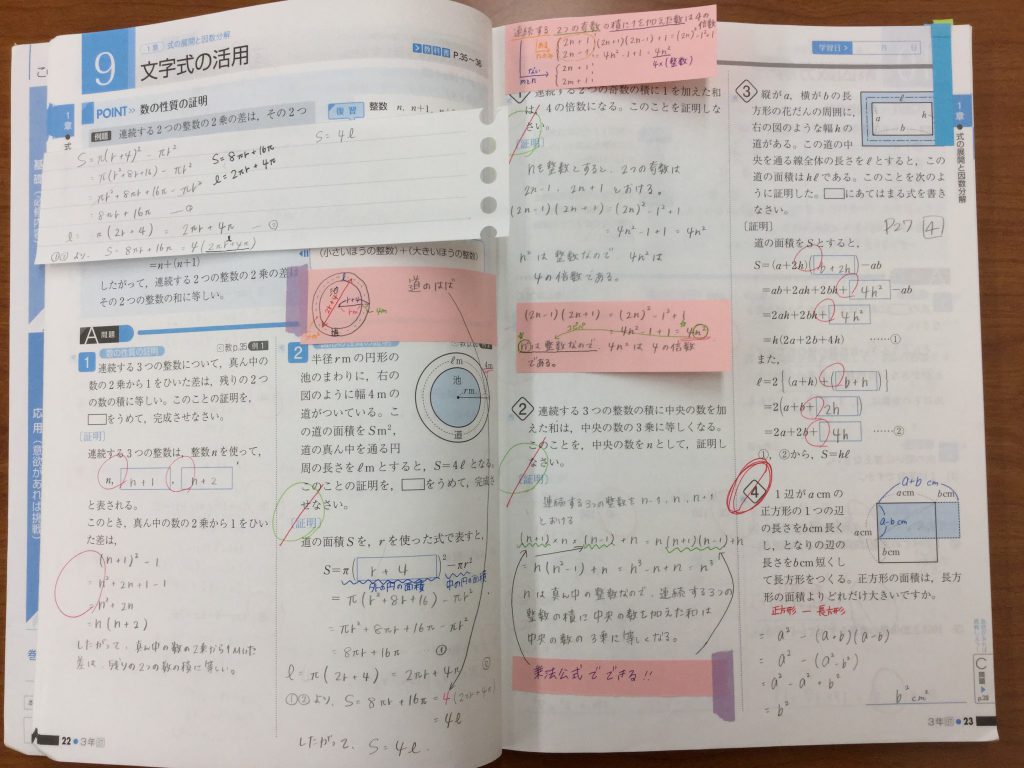 9
1章 式の展開と因数分解
文字式の活用
教科書 P.35~36
POINT 数の性質の証明
復習
整数
例題 連続する2つの整数の2乗の差は,その2つ
S=π(r+4)²-πr²
=π(r²+8r+16)-πr²
=πr²+8πr+16π-πr²
=8πr+16π ―①
l=π(2r+4)=2πr+4π ―②
①②より, S=8πr+16π=4(2πr+4π)
S=4l
S=8πr+16π
l=2πr+4π
(小さいほうの整数)+(大きいほうの整数)
=n+(n+1)
したがって,連続する2つの整数の2乗の差は
その2つの整数の和に等しい。
A 問題
1 数の性質の証明
教p.35 例1
連続する3つの整数について,真ん中の
数の2乗から1をひいた差は,残りの2つ
の数の積に等しい。このことの証明を,
□をうめて,完成させなさい。
[証明]
連続する3つの整数は,整数nを使って,
n, n+1, n+2
と表される。
このとき,真ん中の数の2乗から1をひい
た差は,
(n+1)²-1
=n²+2n+1-1
=n²+2n
=n(n+2)
したがって、真ん中の数の2乗から1ひいた
差は、残りの2つの数の積に等しい。
道のはば
池
道
4m
2 半径rmの円形の
池のまわりに,右の
図のように幅4mの
道がついている。こ
の道の面積をSm²,
道の真ん中を通る円
周の長さをlmとすると,S=4lとなる。
このことの証明を,□をうめて,完成さ
せなさい。
lm
池
rm
道
[証明]
道の面積Sを,rを使った式で表すと,
S=π(r+4)²-πr²
外の円の面積
中の円の面積
=π(r²+8r+16)-πr²
=πr²+8πr+16π-πr²
=8πr+16π ①
l=π(2r+4)=2πr+4π ②
①②より, S=8πr+16π=4(2πr+4π)
=4l
したがって、S=4l.
22 3年
連続する2つの奇数の積に1を加えた数は4の倍数
2n+1
2n-1
(2n+1)(2n-1)+1=(2n)²-1²+1
=4n²-1+1=4n²
4×(整数)
2n+1
2m+1
1 連続する2つの奇数の積に1を加えた和は,
4の倍数になる。このことを証明しな
さい。
[証明]
nを整数とすると、2つの奇数は
2n-1, 2n+1 とおける。
(2n-1)(2n+1)=(2n)²-1²+1
=4n²-1+1=4n²
n²は整数なので、4n²は
4の倍数である。
(2n-1)(2n+1)=(2n)²-1²+1
=4n²-1+1=4n²
nは整数なので、4n²は4の倍数
である。
2 連続する3つの整数の積に中央の数を加
えた和は,中央の数の3乗に等しくなる。
このことを,中央の数をnとして,証明し
なさい。
[証明]
連続する3つの整数をn-1, n, n+1
とおける
(n+1)×n×(n-1)+n=n(n+1)(n-1)+n
=n(n²-1)+n=n³-n+n=n³
nは真ん中の整数なので、連続する3つの
整数の積に中央の数を加えた和は
中央の数の3乗に等しくなる。
乗法公式でできる!!
学習日 月 日
3 縦がa,横がbの長
方形の花だんの周囲に,
右の図のような幅hの
道がある。この道の中
央を通る線全体の長さをlとすると,この
道の面積はhlである。このことを次のよ
うに証明した。□にあてはまる式を書き
なさい。
l
a
h
b
P27 4
[証明]
道の面積をSとすると,
S=(a+2h)(b+2h)-ab
=ab+2ah+2bh+4h²-ab
=2ah+2bh+4h²
=h(2a+2b+4h) ……①
また,
l=2{(a+h)+(b+h)}
=2(a+b+2h)
=2a+2b+4h ……②
①,②から,S=hl
4 1辺がacmの
正方形の1つの辺
の長さをbcm長く
し,となりの辺の
長さをbcm短くし
て長方形をつくる。正方形の面積は,長方
形の面積よりどれだけ大きいですか。
a+b cm
acm
bcm
a-b cm
acm
bcm
正方形-長方形
=a²-(a+b)(a-b)
=a²-(a²-b²)
=a²-a²+b²
=b²
b² cm²
1章 式の展開と因数分解
C 問題
p.38
3年 23